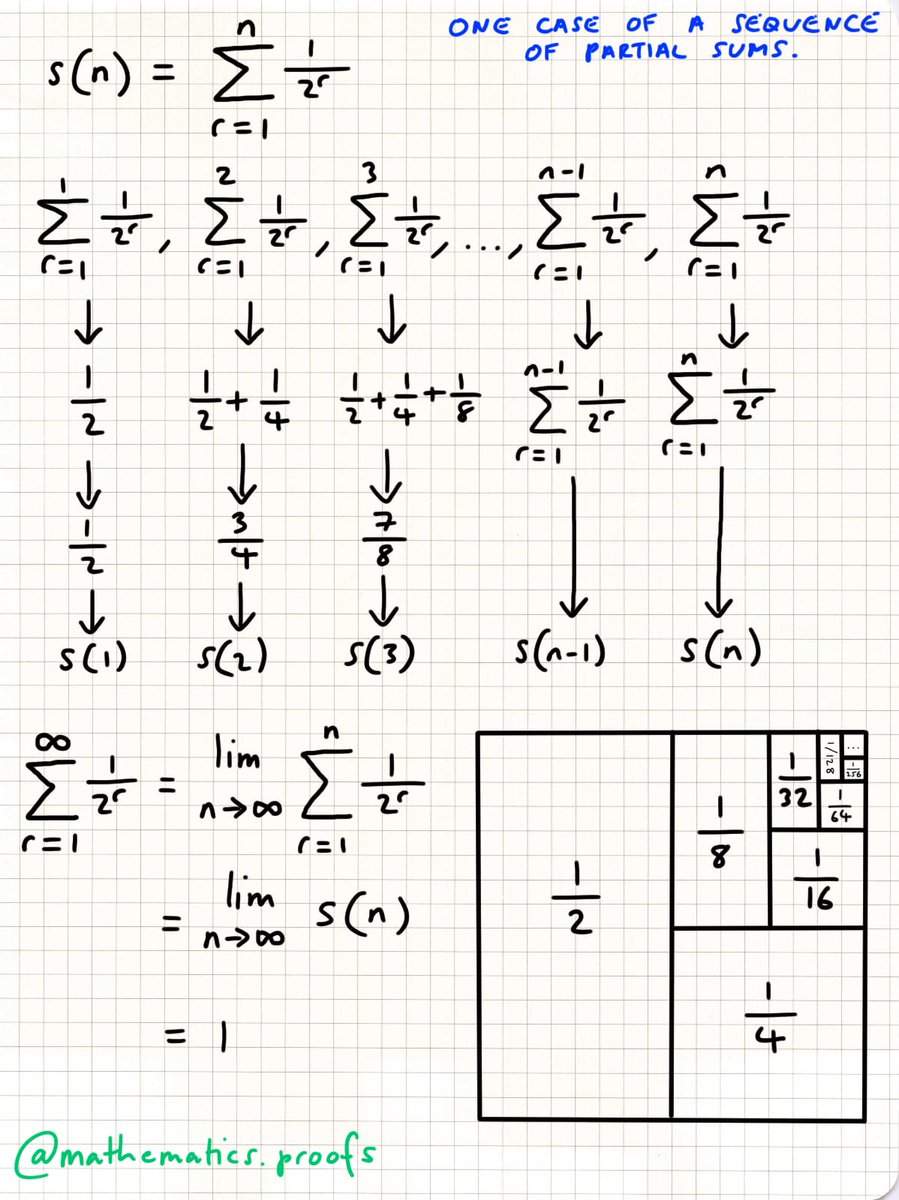 ONE CASE OF A SEQUENCE
OF PARTIAL SUMS.
s(n) = ∑_{r=1}^{n} 1/2^r
∑_{r=1}^{1} 1/2^r , ∑_{r=1}^{2} 1/2^r , ∑_{r=1}^{3} 1/2^r , ... , ∑_{r=1}^{n-1} 1/2^r , ∑_{r=1}^{n} 1/2^r
↓ ↓ ↓ ↓ ↓
1/2 1/2 + 1/4 1/2 + 1/4 + 1/8 ∑_{r=1}^{n-1} 1/2^r ∑_{r=1}^{n} 1/2^r
↓ ↓ ↓ ↓ ↓
1/2 3/4 7/8
↓ ↓ ↓
s(1) s(2) s(3) s(n-1) s(n)
∑_{r=1}^{∞} 1/2^r = lim_{n→∞} ∑_{r=1}^{n} 1/2^r
= lim_{n→∞} s(n)
= 1
1/2
1/4
1/8
1/16
1/32
1/64
1/128
1/256
...
@mathematics.proofs